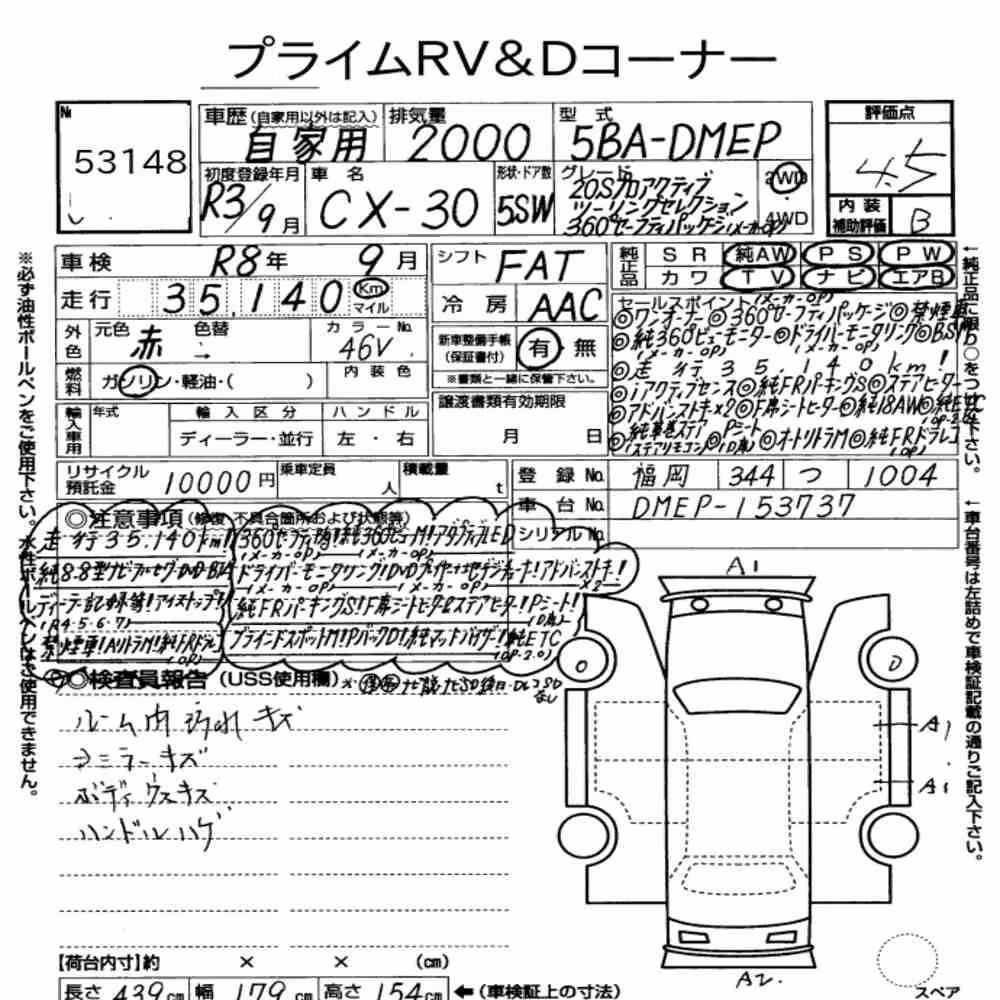 プライムRV&Dコーナー
№ 53148
車歴(自家用以外は記入) 自家用
排気量 2000
型式 5BA-DMEP
評価点 4.5
初度登録年月 R3/9月
車名 CX-30
形状・ドア数 5SW
グレード 20Sプロアクティブ
ツーリングセレクション
360°セーフティパッケージ(メーカーOP)
2WD
4WD
内装補助評価 B
車検 R8年 9月
シフト FAT
純正品 SR 純AW PS PW
カワ TV ナビ エアB
走行 35,140 Km マイル
冷房 AAC
外色 元色 赤 色替 → カラーNo. 46V
新車整備手帳(保証書付) 有・無
※書類と一緒に保管下さい。
燃料 ガソリン・軽油・( ) 内装色
セールスポイント(メーカーOP)
◎ワンオーナー◎360°セーフティパッケージ◎禁煙車
◎純360°ビューモニター◎ドライバーモニタリング◎BSM
(メーカーOP) (メーカーOP)
◎走行35.140km!
◎iアクティブセンス◎純FRパーキングS◎ステアヒーター
◎アドバンストキー×2◎F席シートヒーター◎純18AW◎純ETC
◎純革巻ステア
(ステアリモコン) Pシート
(D席) ◎オートリトラM◎純FRドラレコ
(OP)
輸入車用 年式 輸入区分 ディーラー・並行 ハンドル 左・右
譲渡書類有効期限 月 日
リサイクル預託金 10000円 乗車定員 人 積載量 t
登録No. 福岡 344 つ 1004
車台No. DMEP-153737
シリアルNo.
◎注意事項(修復、不具合箇所および状態等)
走行35.140km!
(メーカーOP) (メーカーOP)
ドライバーモニタリング!
(メーカーOP) ×2
(R4・5・6・7)
純FRパーキングS!F席シートヒータ&ステアヒーター!Pシート!
(D席)
禁煙車!AリトラM!純FRドラレコ
(OP)
ブラインドスポットM!PバックD!純マットバイザー!純ETC
(OP・2.0)
◎検査員報告(USS使用欄)
ルーム内汚れ キズ
ミラーキズ
ボディ
ハンドルハゲ
A1
A1
A1
A2
【荷台内寸】約 × × (cm)
長さ 439cm 幅 179cm 高さ 154cm ←(車検証上の寸法)
スペア
※必ず油性ボールペンをご使用下さい。水性ボールペンはご使用できません。
↑車台番号は左詰めで車検証記載の通りご記入下さい。